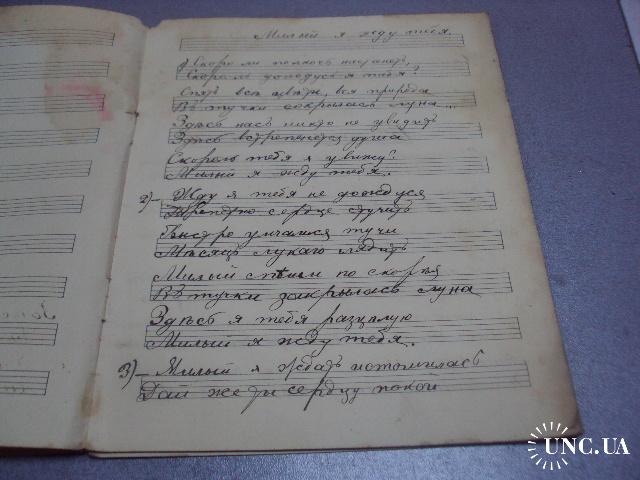 Милый я жду тебя.
1) Скоро ли полночь настанетъ,
Скоро ль дождусь я тебя?
Спятъ все цветы, вся природа
Въ тучки сокрылась луна...
Здѣсь насъ никто не увидитъ
Здѣсь встрепенется душа
Скороль тебя я увижу?
Милый я жду тебя.
2) Жду я тебя не дождуся
Трепетно сердце стучитъ
Быстро умчалися тучи
Мѣсяцъ лукаво глядитъ
Милый спѣши по скорѣя
Въ тучки закрылась луна
Здѣсь я тебя разцалую
Милый я жду тебя.
3) Милый я ждать истомилась
Дай же ты сердцу покой
UNC.UA